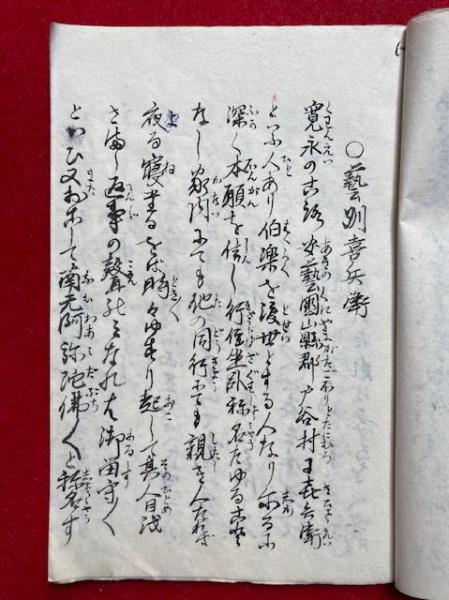 ○藝刕喜兵衛
寛永のころ安藝國山縣郡戸谷村に㐂兵衛
といふ人あり伯楽を渡世とする人なり尓るに
深く本願を信し行住坐臥称名たゆること
なし家内にても他の同行にても親き人なれば
夜る寝たるをば時々ゆすり起して其人目を
さまし返事の聲のミなれば御留守〱
といひ又おこして南无阿弥陀佛〱と称名す